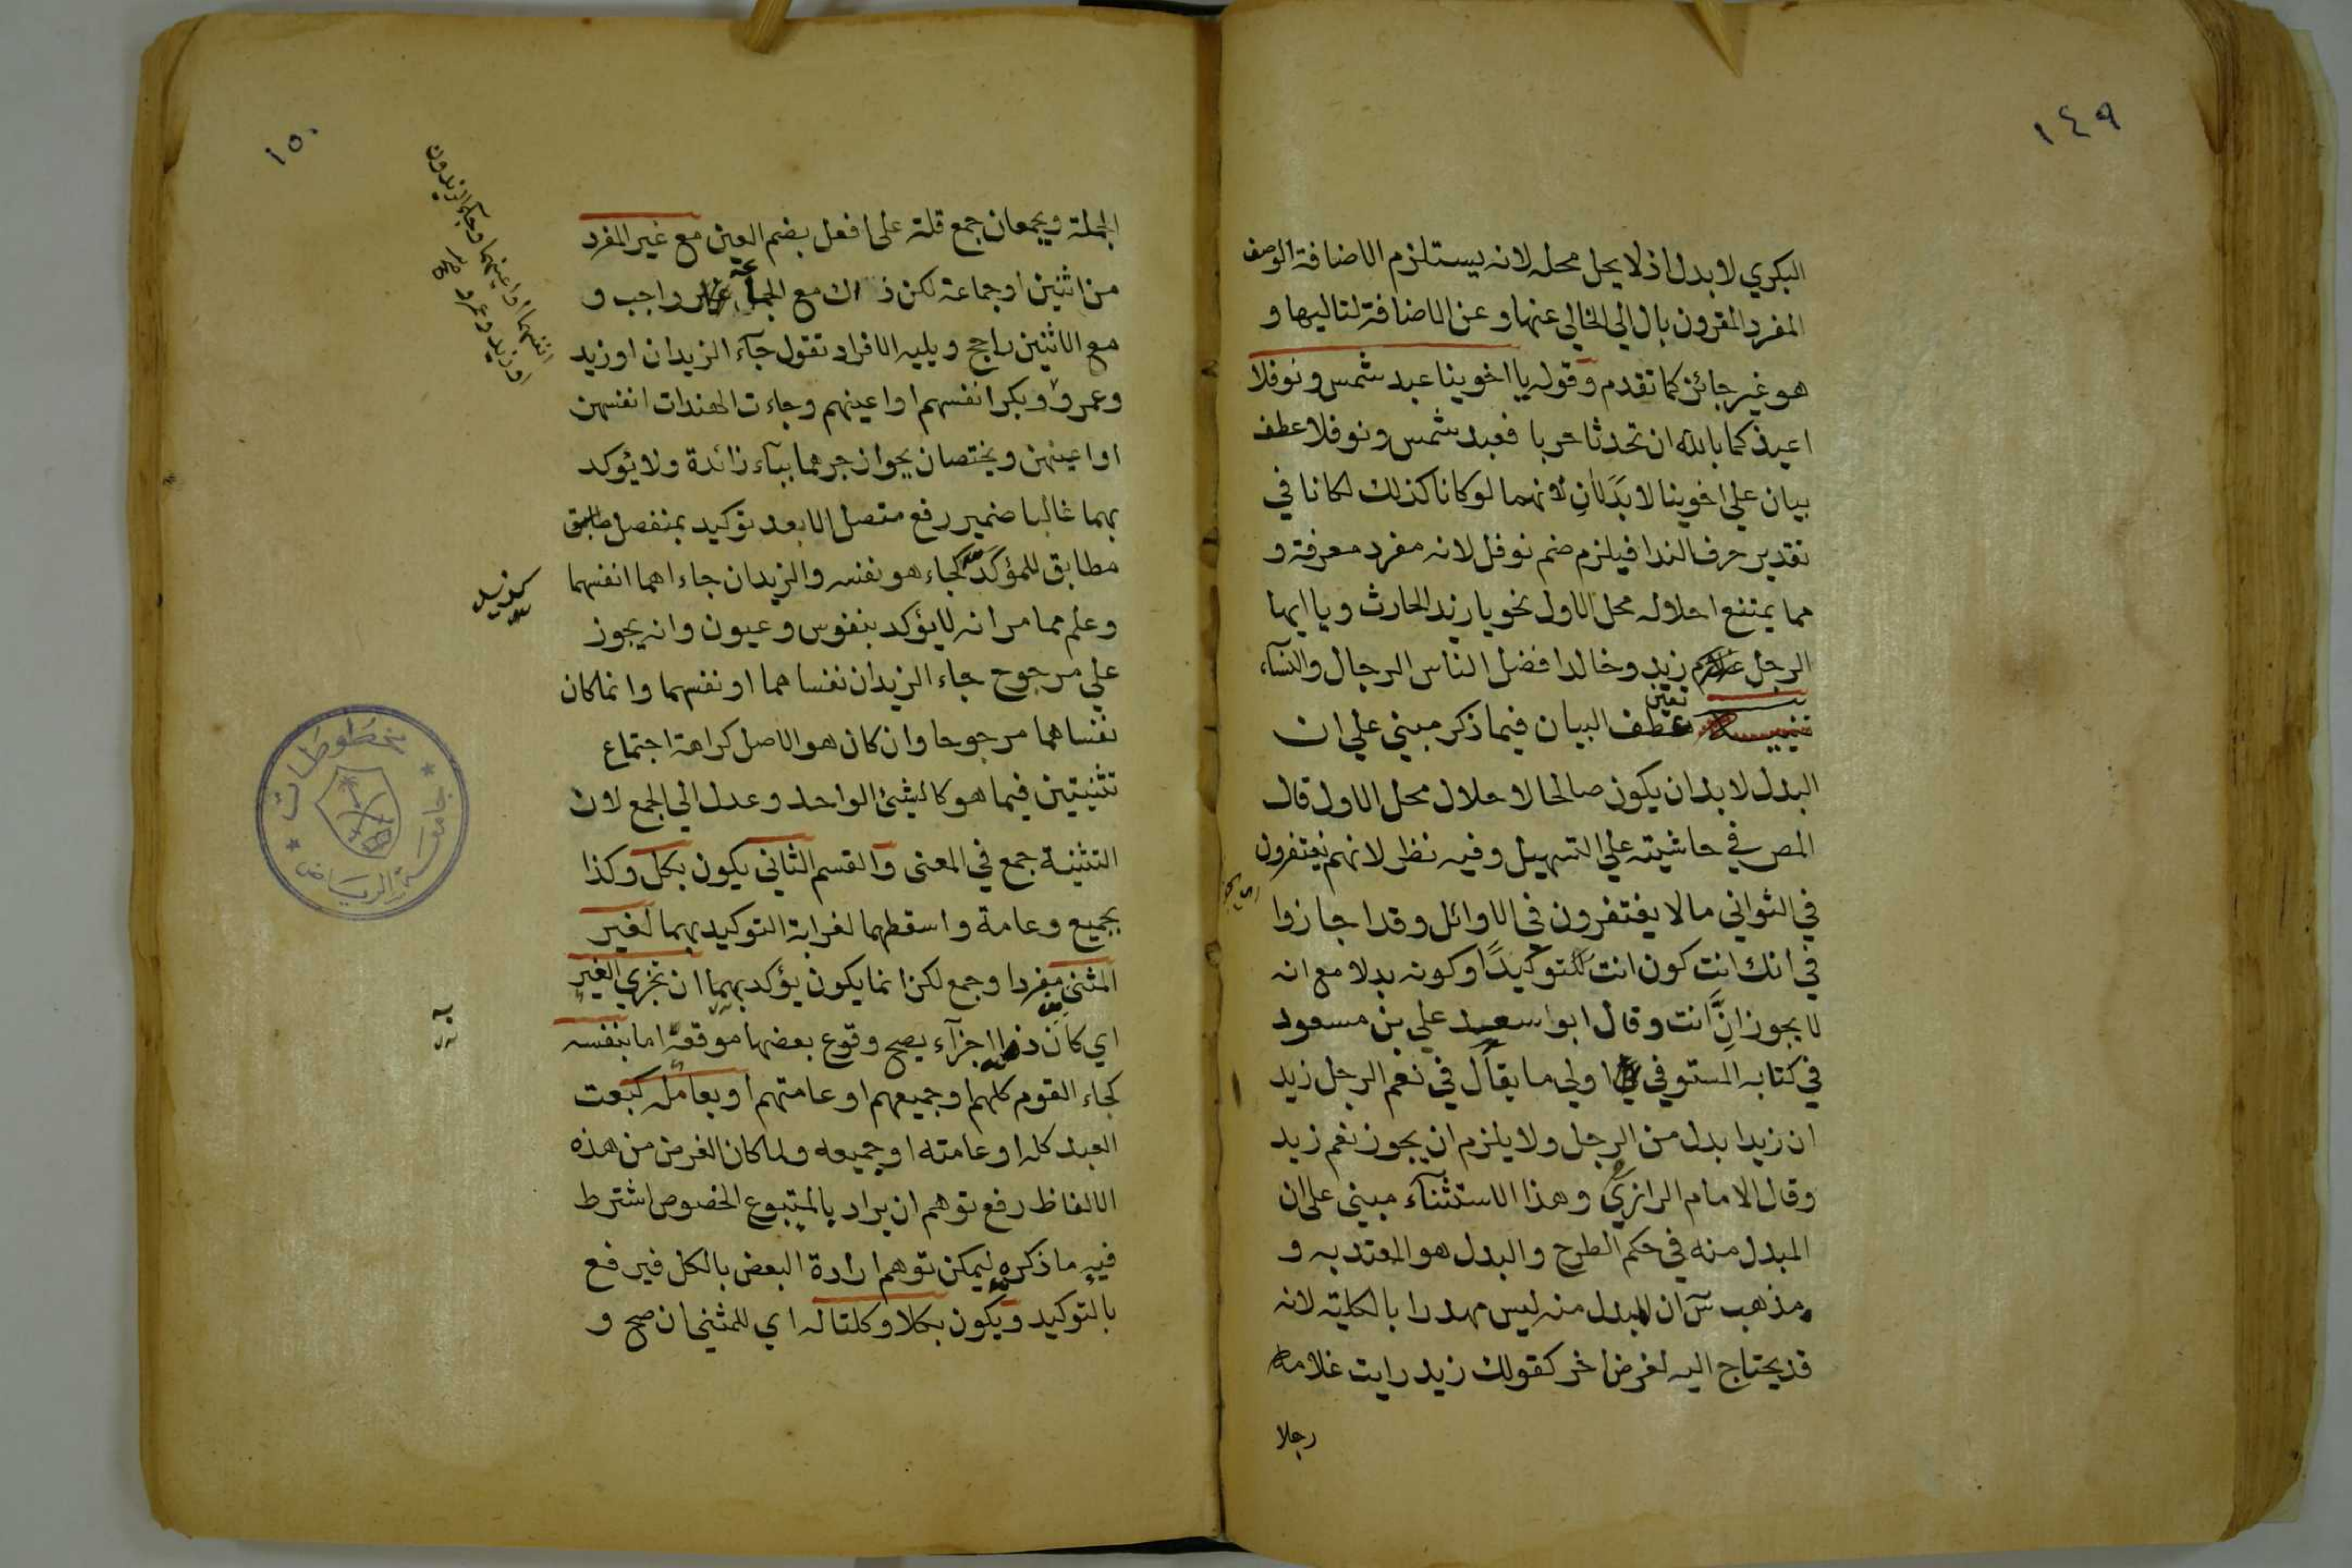 ١٤٩
البكري لا بدل اذ لا يحل محله لانه يستلزم الاضافة الوصف
المفرد المقرون بال الي الخالي عنها وعن الاضافة لتاليها و
هو غير جائز كما تقدم وقوله يا اخوينا عبد شمس ونوفلا
اعيذكما بالله ان تحدثا حربا فعبد شمس ونوفلا عطف
بيان علي اخوينا لا بَدَلَانِ لانهما لو كانا كذلك لكانا في
تقدير حرف الندا فيلزم ضم نوفل لانه مفرد معرفة و
مما يمتنع احلاله محل الاول نحو يا زيد الحارث ويا ايها
الرجل غلام زيد وخالد افضل الناس الرجال والنساء
تنبيه تعين عطف البيان فيما ذكر مبني علي ان
البدل لا بد ان يكون صالحا لاحلال محل الاول قال
المص في حاشيته علي التسهيل وفيه نظر لانهم يغتفرون
في الثواني ما لا يغتفرون في الاوائل وقد اجازوا
في انك انت كون انت توكيدًا وكونه بدلا مع انه
لا يجوز اِنَّ انت وقال ابو سعيد علي بن مسعود
في كتابه المستوفي اولي ما يقال في نعم الرجل زيد
ان زيدا بدل من الرجل ولا يلزم ان يجوز نعم زيد
وقال الامام الرازي وهذا الاستثناء مبني علي ان
المبدل منه في حكم الطرح والبدل هو المعتد به و
مذهب س ان المبدل منه ليس مهدرا بالكلية لانه
قد يحتاج اليه لغرض اخر كقولك زيد رايت غلامه
رجلا
١٥٠
الجملة ويجمعان جمع قلة علي افعل بضم العين مع غير المفرد
من اثنين او جماعة لكن ذلك مع الجماعة واجب و
مع الاثنين راجح ويليه الافراد تقول جآء الزيدان او زيد
وعمرو وبكر انفسهم او اعينهم وجاءت الهندات انفسهن
او اعينهن ويختصان بجواز جرهما بباء زائدة ولا يؤكد
بهما غالبا ضمير رفع متصل الا بعد توكيد بمنفصل
مطابق للمؤكَد كجاء هو نفسه والزيدان جاءا هما انفسهما
وعلم مما مر انه لا يؤكد بنفوس وعيون وانه يجوز
علي مرجوح جاء الزيدان نفساهما او نفسهما وانما كان
نفساهما مرجوحا وان كان هو الاصل كراهة اجتماع
تثنيتين فيما هو كالشئ الواحد وعدل الي الجمع لان
التثنية جمع في المعنى والقسم الثاني يكون بكل وكذا
بجميع وعامة واسقطهما لغرابة التوكيد بهما لغير
المثنى مفردا وجمع لكن انما يكون يؤكد بهما ان تجزي الغير
اي كان ذا اجزآء يصح وقوع بعضها موقعه اما بنفسه
كجاء القوم كلهم او جميعهم او عامتهم او بعامله كبعت
العبد كله او عامته او جميعه ولما كان الغرض من هذه
الالفاظ رفع توهم ان يراد بالمتبوع الخصوص اشترط
فيه ما ذكره ليمكن توهم ارادة البعض بالكل فيرفع
بالتوكيد ويكون بكلا وكلتا له اي للمثني ان صح و
انفسهما او اعينهما وجاء الزيدون
او زيد وعمرو
كزيد
به
مخطوطات
جامعة الرياض